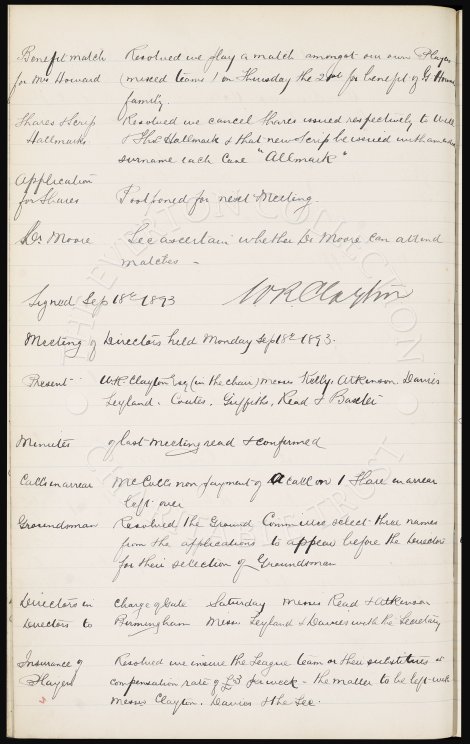 Benefit match Resolved we play a match amongst our own Players
for Mrs Howard (mixed teams) on Thursday the 21st for benefit of G
family.
Shares & Scrip Resolved we cancel Shares issued respectively to Will
Hallmarks & Thos Hallmark & that new Scrip be issued with
surname each case "Allmark"
Application
for Shares Postponed for next Meeting.
Dr Moore Sec ascertain whether Dr Moore can attend
matches -
Signed Sep 18th 1893 W R Clayton
Meeting of Directors held Monday Sep 18th 1893.
Present W.R. Clayton Esq (in the chair) Messrs Kelly, Atkinson Davies
Leyland. Coates. Griffiths, Read & Baxter
Minutes of last meeting read & confirmed
Calls in arrear McCalls non payment of a call on 1 Share in arrear
left over
Groundsman Resolved the Ground Committee select three names
from the applications to appear before the Directors
for their selection of Groundsman
Directors in charge of Gate Saturday Messrs Read & Atkinson
Directors to Birmingham Messrs Leyland & Davies with the Secretary
Insurance of Resolved we insure the League team or their substitutes at
Players compensation rate of £3 per week - the matter to be left with
Messrs Clayton. Davies & the Sec.
THE EVERTON COLLECTION
TRUST